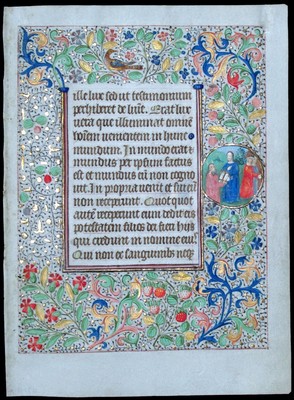 ille lux sed ut testimonium
perhiberet de lumĩe. Erat lux
vera que illuminat omnẽ
hoĩem venientem in hunc
mundum. In mundo erat et
mundus per ipsum factus
est et mundus eũ non cogno
uit. In propria venit et sui eũ
non receperunt. Quot quot
autẽ receperunt eum dedit eis
potestatem filios dei fieri hijs
qui credunt in nomine eius.
Qui non ex sanguinibus neqȝ